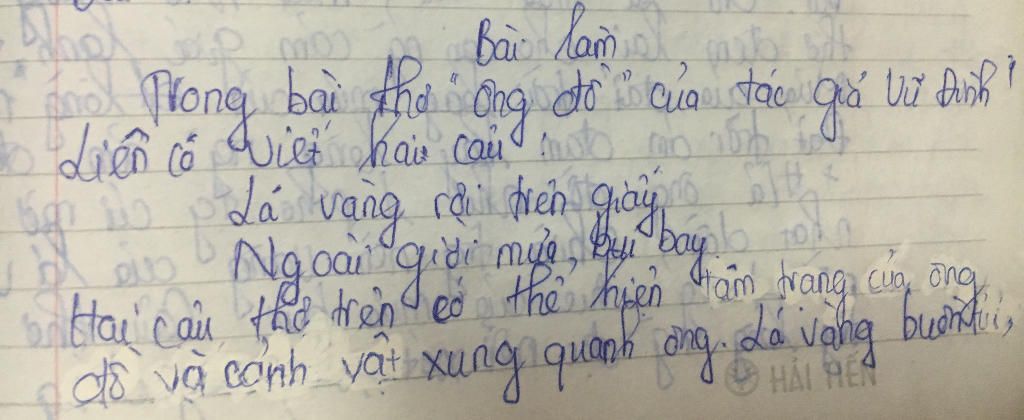 Bài làm
Trong bài thơ "ông đồ" của tác giả Vũ Đình
Liên có viết hai câu:
Lá vàng rơi trên giấy
Ngoài giời mưa, bụi bay.
Hai câu thơ trên có thể hiện tâm trạng của ông
đồ và cảnh vật xung quanh ông. Lá vàng buồn tủi,
HẢI TIẾN